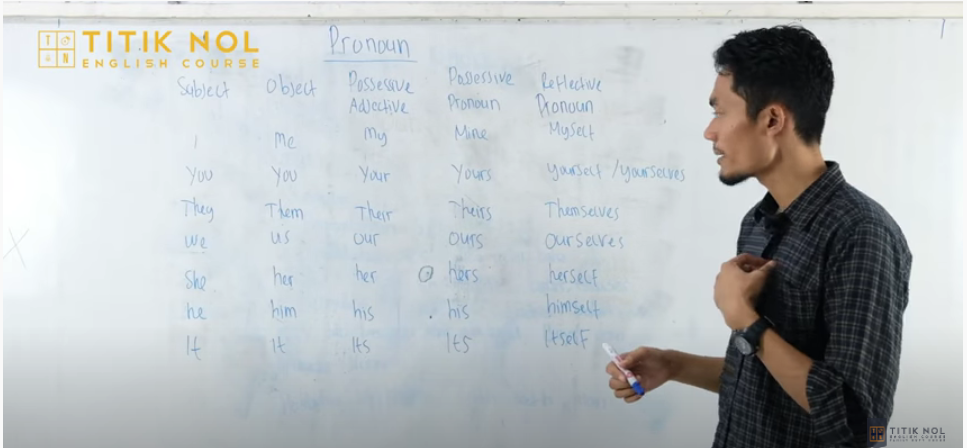 TITIK NOL
ENGLISH COURSE
Pronoun
Subject Object Possessive Adjective Possessive Pronoun Reflective Pronoun
I me my Mine Myself
You You Your Yours yourself / yourselves
They Them Their Theirs Themselves
we us our ours ourselves
She her her hers herself
he him his his himself
It It Its Its Itself
TITIK NOL
ENGLISH COURSE